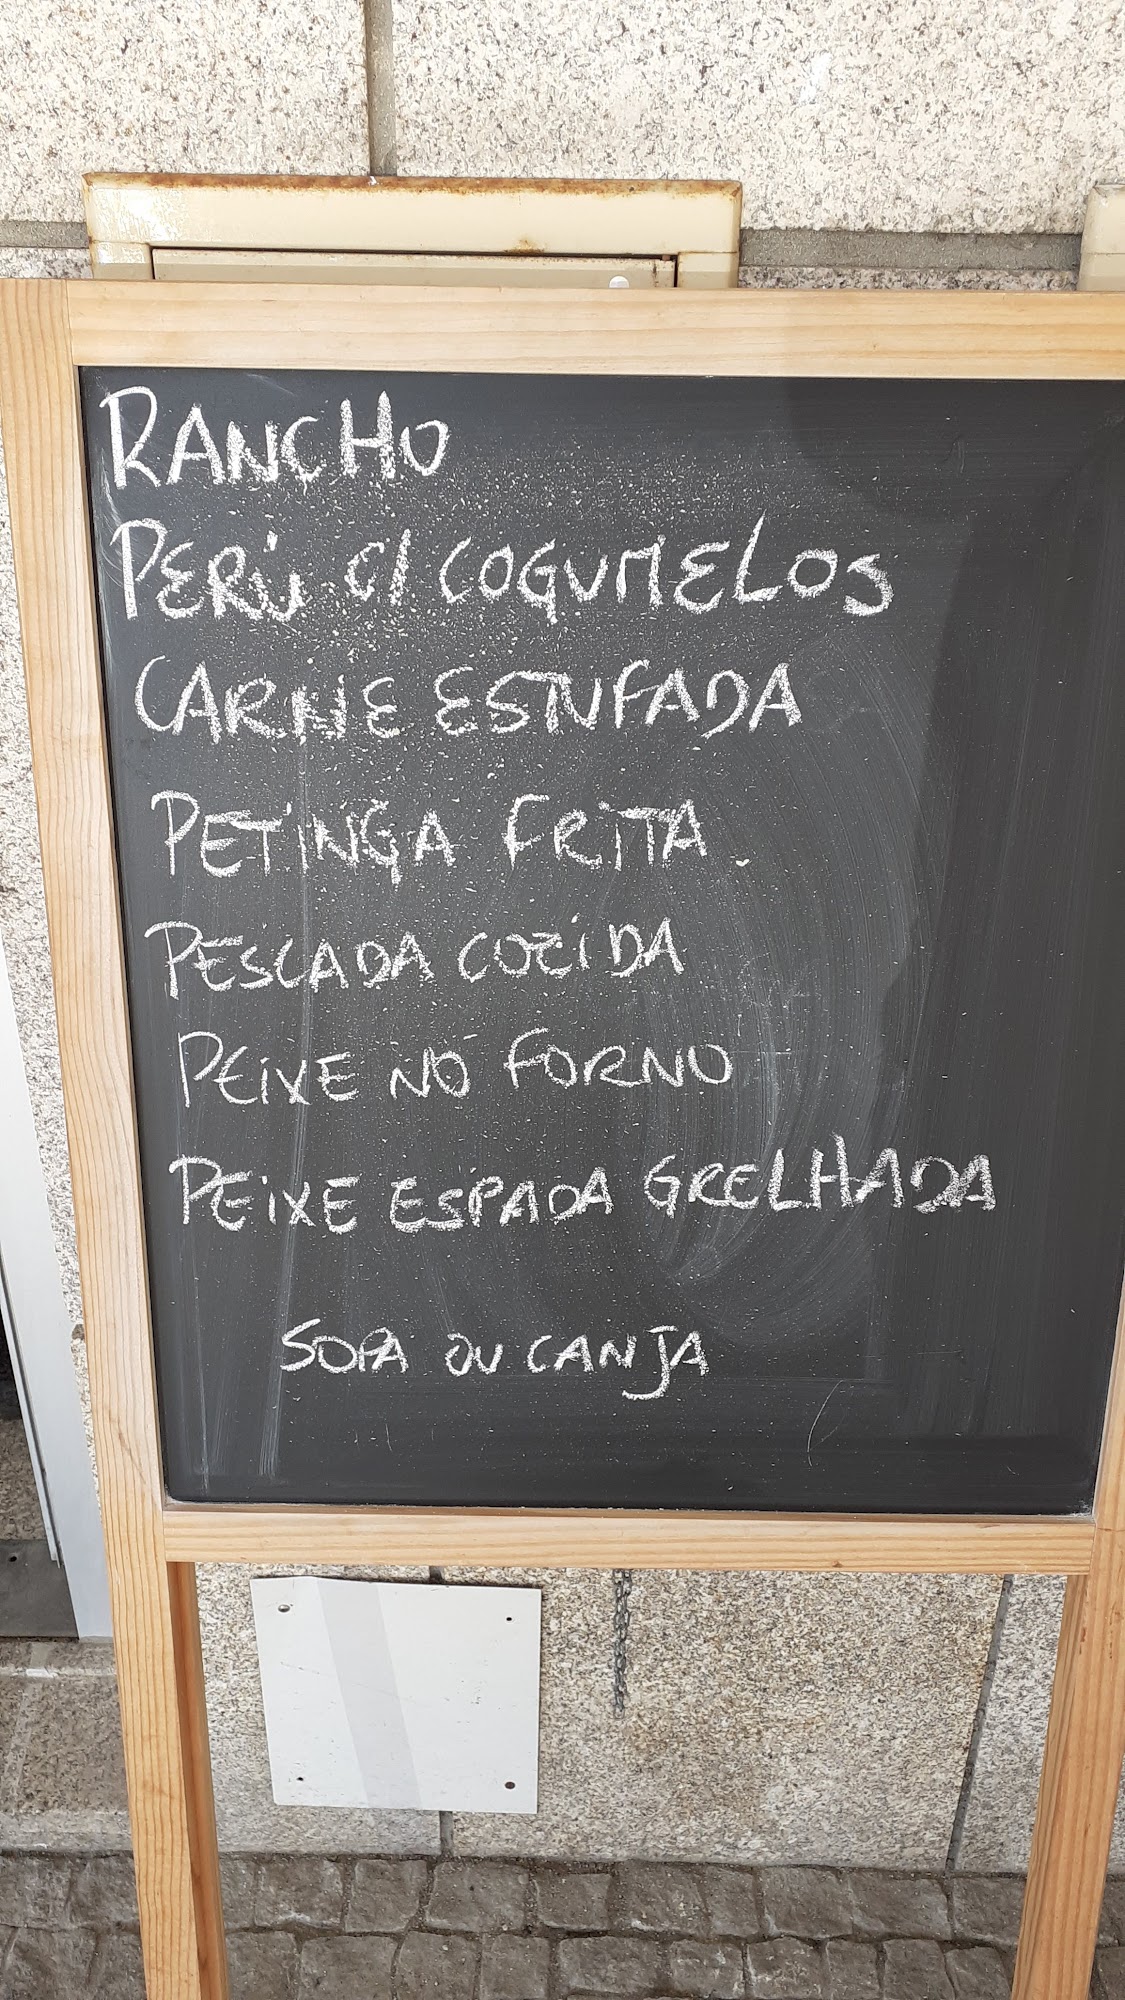 RANCHO
PERÚ C/ COGUMELOS
CARNE ESTUFADA
PETINGA FRITA.
PESCADA COZIDA
PEIXE NO FORNO
PEIXE ESPADA GRELHADA
SOPA OU CANJA